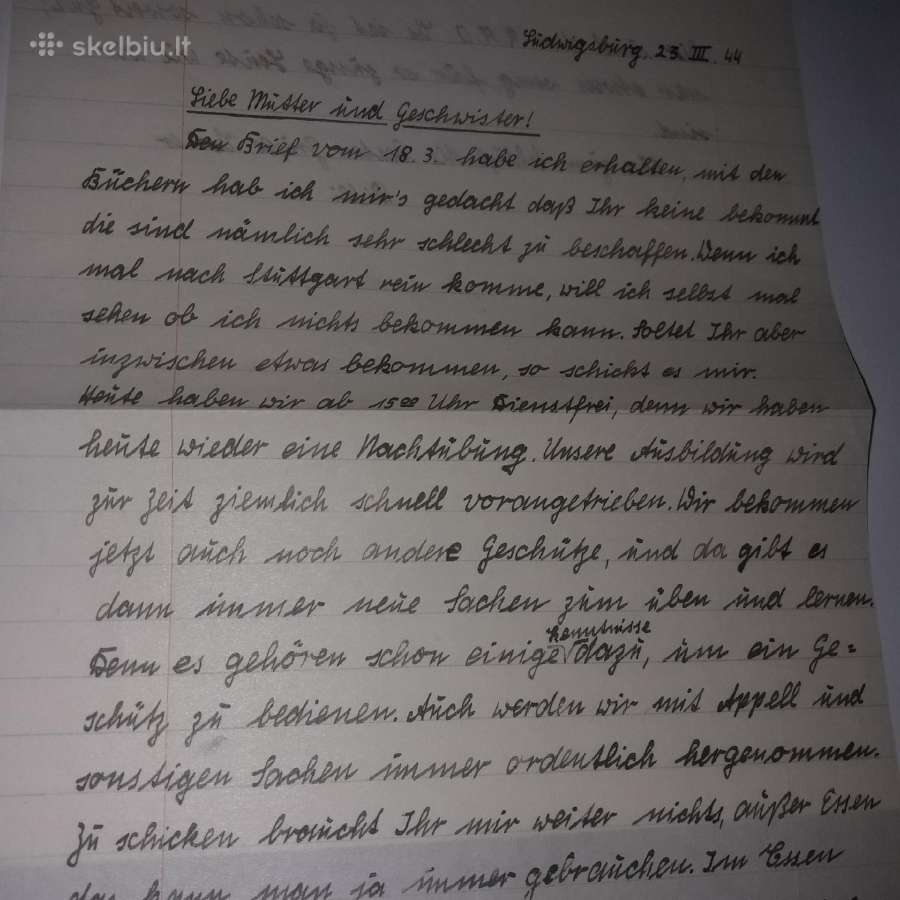 skelbiu.lt
Ludwigsburg, 23. III. 44
Liebe Mutter und Geschwister!
Den Brief vom 18.3. habe ich erhalten, mit den
Büchern hab ich mir's gedacht daß Ihr keine bekommt
die sind nämlich sehr schlecht zu beschaffen. Wenn ich
mal nach Stuttgart rein komme, will ich selbst mal
sehen ob ich nichts bekommen kann. Soltet Ihr aber
inzwischen etwas bekommen, so schickt es mir.
Heute haben wir ab 15 00 Uhr Dienstfrei, denn wir haben
heute wieder eine Nachtübung. Unsere Ausbildung wird
zur Zeit ziemlich schnell vorangetrieben. Wir bekommen
jetzt auch noch andere Geschütze, und da gibt es
dann immer neue Sachen zum üben und lernen.
Denn es gehören schon einige kenntnisse dazu, um ein Ge=
schütz zu bedienen. Auch werden wir mit Appell und
sonstigen Sachen immer ordentlich hergenommen.
Zu schicken braucht Ihr mir weiter nichts, außer Essen
das kann man ja immer gebrauchen. Im Essen